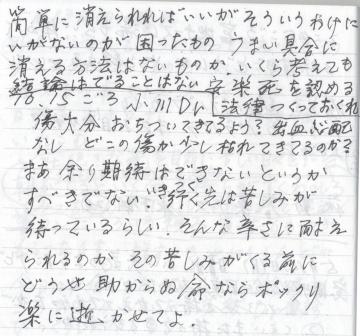 簡単に消えられればいいがそういうわけに
いがないのが困ったもの うまい具合に
消える方法はないものか、いくら考えても
結論はでることはない 安楽死を認める
10.15ごろ 小川Dr 法律つくっておくれ
傷大分おちついてきてるよう? 出血心配
なし どこの傷か少し枯れてきてるのか?
まあ余り期待はできないというか
すべきでない、行く先は苦しみが
待っているらしい、そんな辛さに耐え
られるのか その苦しみがくる前に
どうせ助からぬ命ならポックリ
楽に逝かせてよ.